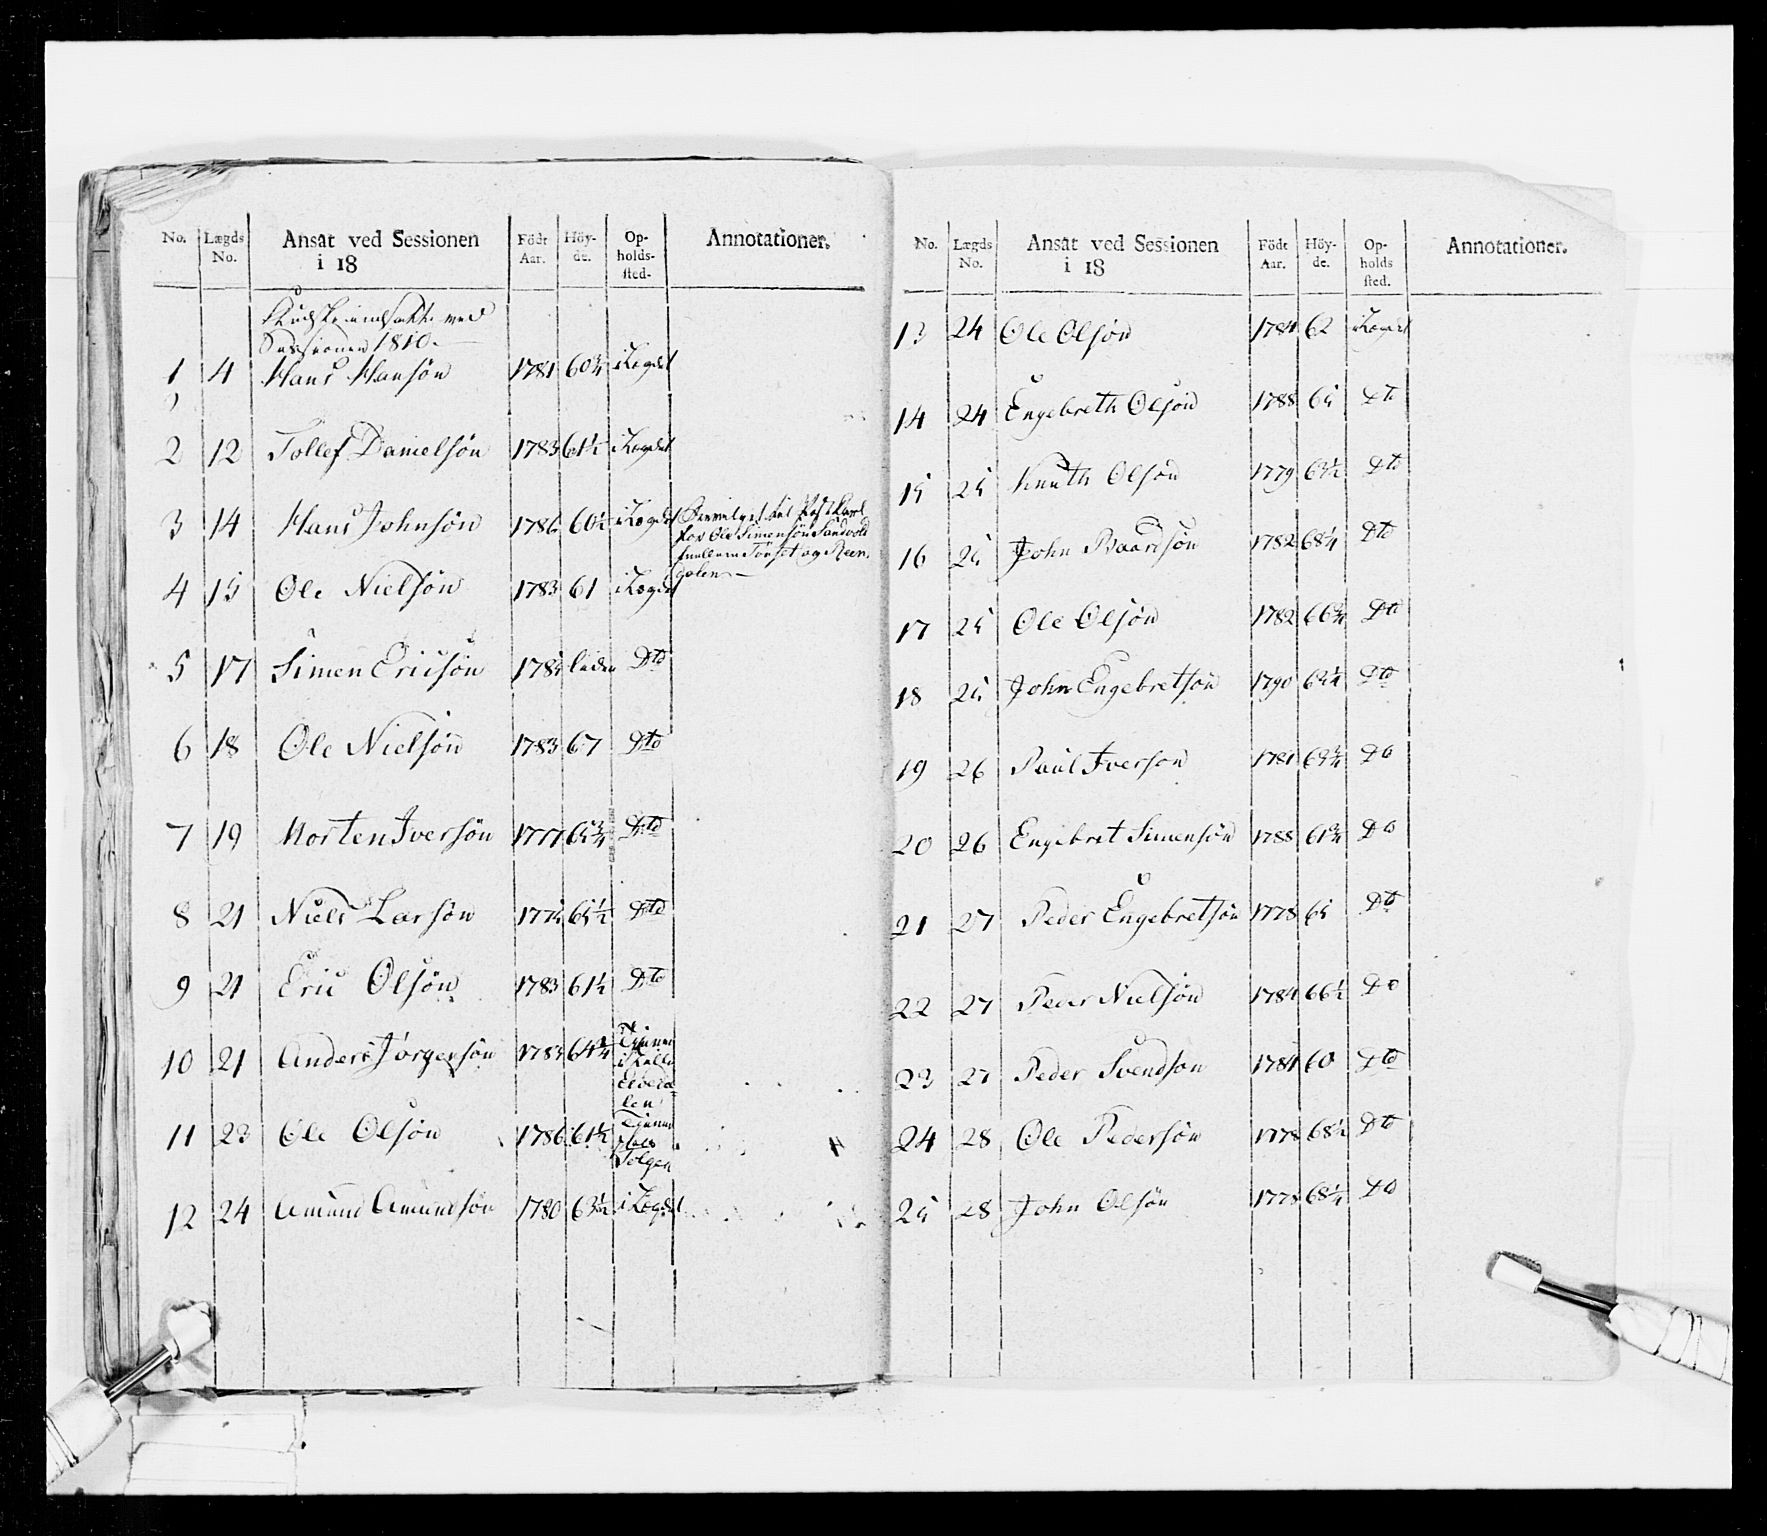 No. Lægds No. Ansat ved Sessionen i 18 Födt Aar. Höy-de. Op-holds-sted. Annotationer.
Sessionen 1810.
1 4 Hans Hansön 1781 60¾ i Lægdet
2 12 Tollef Danielsön 1783 61½ i Lægdet
3 14 Hans Johnsön 1786 60½ i Lægdet
for Ole Simensön Sandvold
imellem Tönset og Reen
dalen
4 15 Ole Nielsön 1783 61 i Lægdet
5 17 Simen Ericsön Dto
6 18 Ole Nielsön 1783 67 Dto
7 19 Morten Iversön 1777 65¾ Dto
8 21 Niels Larsön 1775 65½ Dto
9 21 Eric Olsön 1783 61½ Dto
10 21 Anders Jörgensön 1783 64¾ Tjener
Elverda
len
11 23 Ole Olsön 1786 61½ Tjener
Tolgen
12 24 Amund Amundsön 1780 63½ i Lægdet
No. Lægds No. Ansat ved Sessionen i 18 Födt Aar. Höy-de. Op-holds sted. Annotationer.
13 24 Ole Olsön 1784 62 i Lægdet
14 24 Engebreth Olsön 1788 65 Dto
15 25 Knuth Olsön 1779 63½ Dto
16 25 John Baardsön 1782 68¼ Dto
17 25 Ole Olsön 1782 66¾ Dto
18 25 John Engebretsön 1790 Dto
19 26 Paul Iverson 1781 69¾ Do
20 26 Engebret Simensön 1788 61¾ Do
21 27 Peder Engebretsön 1778 65 Dto
22 27 Peder Nielsön 1784 66½ Do
23 27 Peder Svendson 1784 60 Dto
24 28 Ole Pedersön 1778 68½ Dto
25 28 John Olsön 1778 68¼ Do